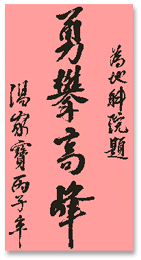 為地科院題
勇攀高峰
湯家寶丙子年